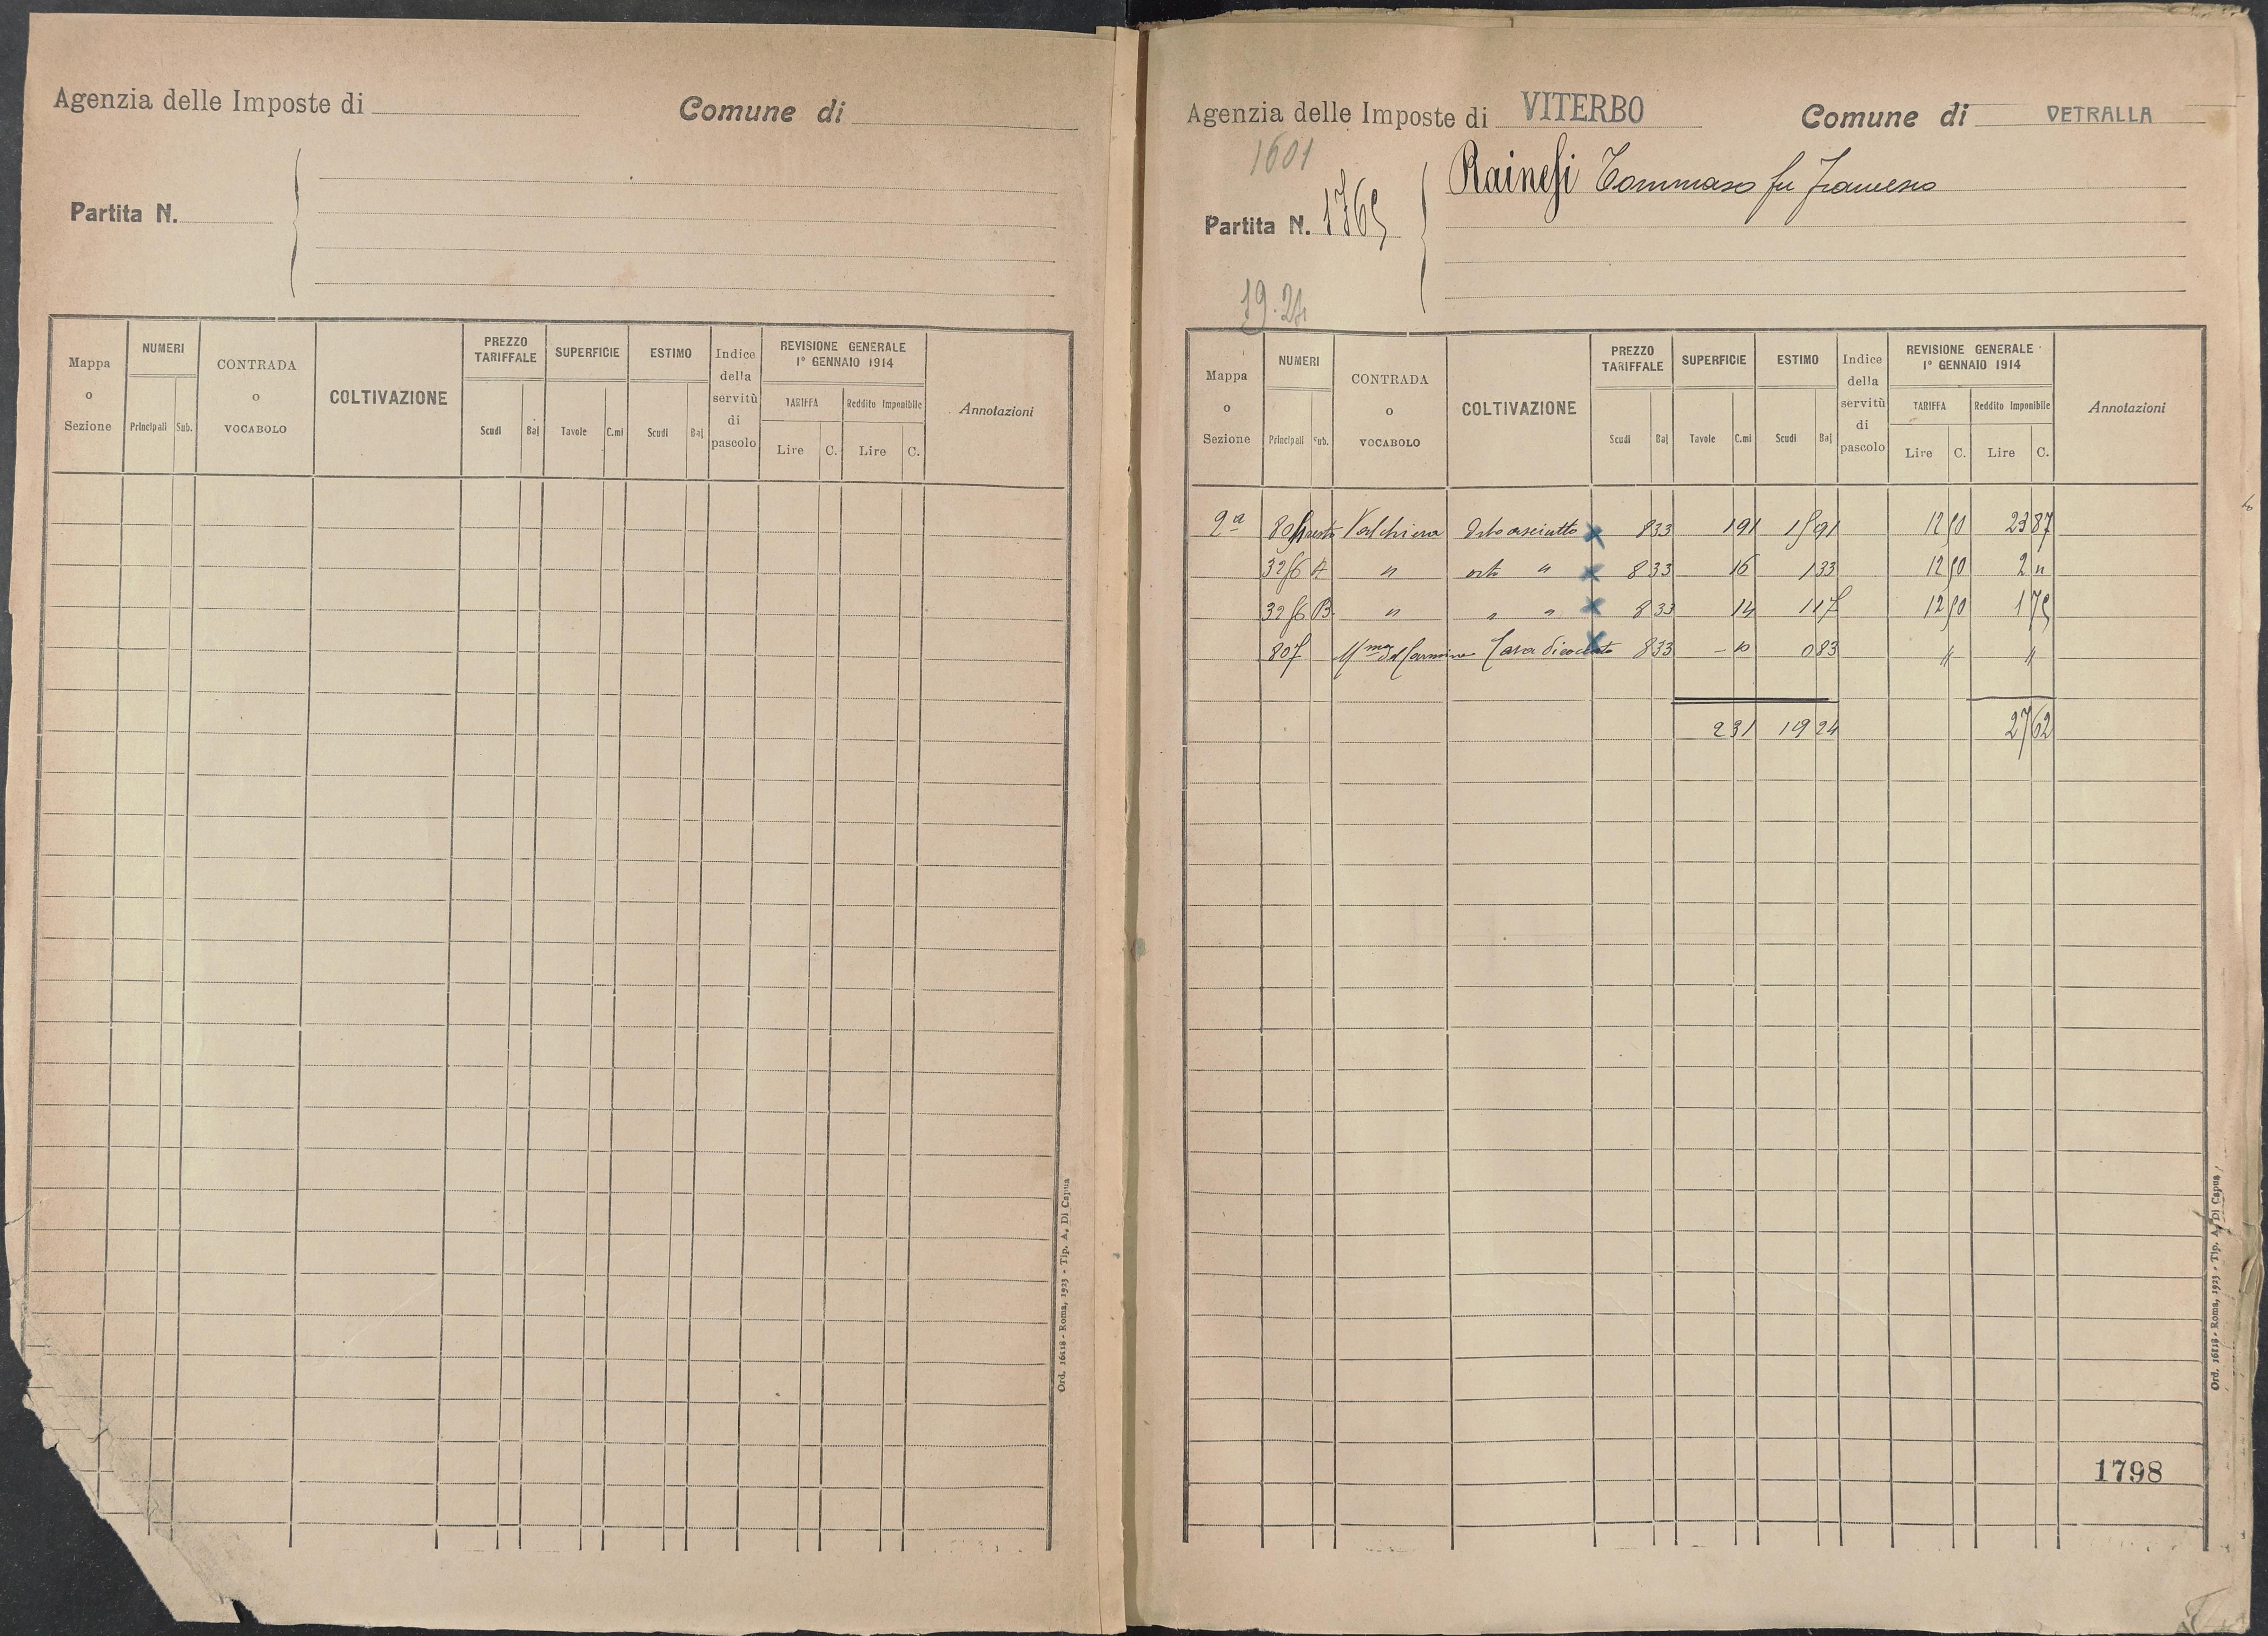 Agenzia delle Imposte di
Comune di
Partita N.
Mappa o Sezione
NUMERI
Principali Sub.
CONTRADA o VOCABOLO
COLTIVAZIONE
PREZZO TARIFFALE
Scudi Baj
SUPERFICIE
Tavole C.mi
ESTIMO
Scudi Baj
Indice della servitù di pascolo
REVISIONE GENERALE
1° GENNAIO 1914
TARIFFA
Lire C.
Reddito Imponibile
Lire C.
Annotazioni
Ord. 16118 - Roma, 1923 - Tip. A. Di Capua
Agenzia delle Imposte di VITERBO
Comune di VETRALLA
1601
Partita N. 1765
Rainesi Tommaso fu Francesco
19.24
Mappa o Sezione
NUMERI
Principali Sub.
CONTRADA o VOCABOLO
COLTIVAZIONE
PREZZO TARIFFALE
Scudi Baj
SUPERFICIE
Tavole C.mi
ESTIMO
Scudi Baj
Indice della servitù di pascolo
REVISIONE GENERALE
1° GENNAIO 1914
TARIFFA
Lire C.
Reddito Imponibile
Lire C.
Annotazioni
2a resto Valchiera Orto asciutto x 8 33 1 91 15 91 12 50 23 87
3256 A " orto " x 8 33 16 1 33 12 50 2 "
3256 B " " " x 8 33 14 1 17 12 50 1 75
807 del Carmine Casa x 8 33 - 10 0 83 " "
2 31 19 24 27 62
1798
Ord. 16118 - Roma, 1923 - Tip. A. Di Capua